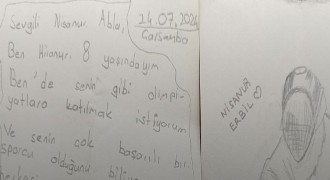 Sevgili Nisanur Abla,
24.07.2024
Çarşamba
Ben Hiranur, 8 yaşındayım
Ben'de senin gibi olimpi-
yatlara katılmak istiyorum
Ve senin çok başarılı bir
sporcu olduğunu
NİSANUR
ERBİL